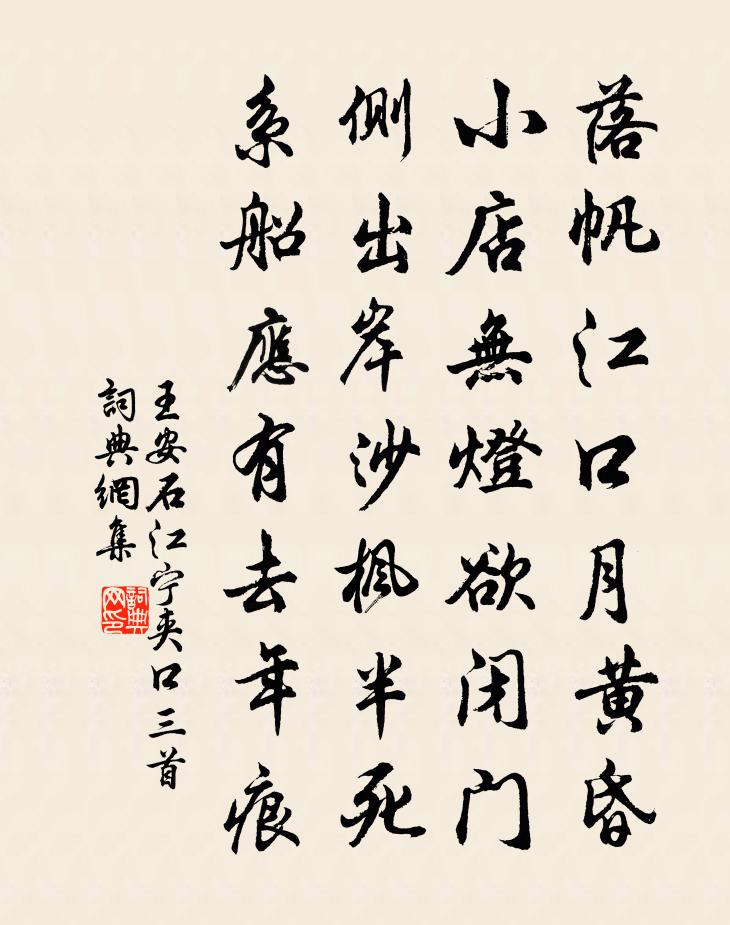 落帆江口月黃昏
小店無燈欲闭门
側出岸沙楓半死
系船應有去年痕
王安石江宁夹口三首
詞典網集
詞典网印